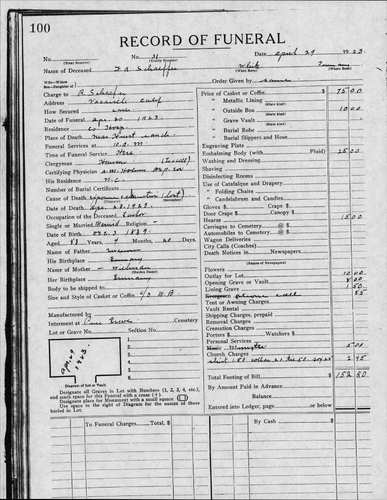 100
RECORD OF FUNERAL
No. (Total Number) No. 11 (Yearly Number) Date April 29 1923
Name of Deceased F. A. Schaefer White (What Race) (Where Born)
Wife—Widow
Son—Daughter of
Order Given by
Charge to
Address Calif
How Secured
Date of Death Apr. 30 1923
Residence Co. Hosp.
Place of Death
Funeral Services at
Time of Funeral Service Here
Clergyman
Certifying Physician
His Residence N. C.
Number of Burial Certificate
Cause of Death (lost) (Secondary)
Date of Death Apr. 28. 1923.
Occupation of the Deceased
Single or Married Religion
Date of Birth Dec. 3 1839.
Aged 83 Years, 4 Months, 20 Days.
Name of Father
His Birthplace Germany
Name of Mother (Maiden Name)
Her Birthplace Germany
Body to be shipped to
Size and Style of Casket or Coffin 6/3 B. B
Manufactured by
Interment at Pine Grove Cemetery
Lot or Grave No. Section No.
1
2
3
4
Apr 29 1923.
Diagram of Lot or Vault
Designate all Graves in Lot with Numbers (1, 2, 3, 4, etc.), and mark space for this Funeral with a cross (+)
Designate place for Monument with a small square
Use space to the right of Diagram for the names of those buried in Lot.
Price of Casket or Coffin $ 75 00
" Metallic Lining (State Kind)
" Outside Box (State Kind) 10 00
" Grave Vault (State Kind)
" Burial Robe (State Kind)
" Burial Slippers and Hose
Engraving Plate
Embalming Body (with Fluid) 25 00
Washing and Dressing
Shaving
Disinfecting Rooms
Use of Catafalque and Drapery
" Folding Chairs
" Candelabrum and Candles
Gloves $ Crape $
Door Crape Canopy $
Hearse 15 00
Carriages to Cemetery @ $
Automobiles to Cemetery @ $
Wagon Deliveries
City Calls (Coaches)
Death Notices in Newspapers
(Names of Newspapers)
Flowers 10 00
Outlay for Lot 8 00
Opening Grave or Vault
Lining Grave 1 50
Evergreen phone call 85
Tent or Awning Charges
Vault Rental
Shipping Charges, prepaid
Removal Charges
Cremation Charges
Porters $ Watchers $
Personal Services
Music Minister 5 00
Church Charges
shirt 1.50 collar .20 tie .50 2 45
Total Footing of Bill $ 152 80
By Amount Paid in Advance
Balance
Entered into Ledger, page or below
To Funeral Charges Total, $
By Cash $